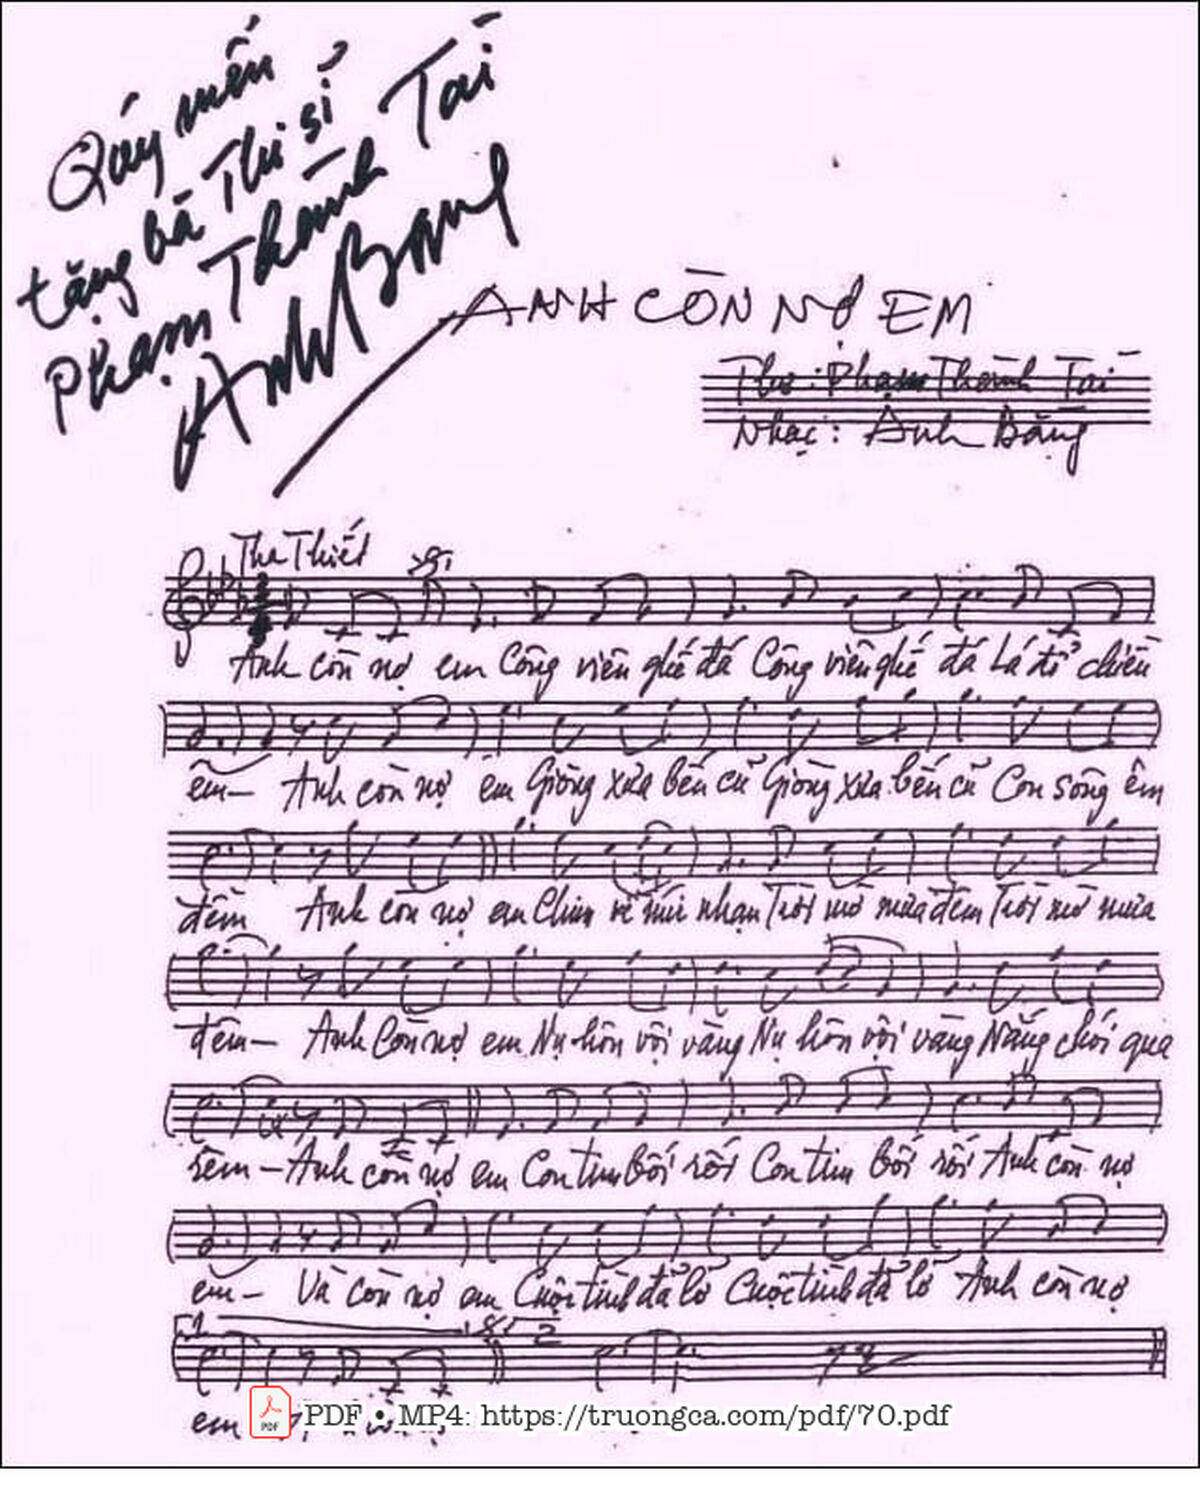 Qúy mến
tặng bà Thi sĩ
Phạm Thành Tài
Anh Bằng
ANH CÒN NỢ EM
Thơ: Phạm Thành Tài
Nhạc: Anh Bằng
Tha Thiết
Anh còn nợ em Công viên ghế đá Công viên ghế đá Lá đổ chiều
em— Anh còn nợ em Giòng xưa bến cũ Giòng xưa bến cũ Con sông êm
đềm Anh còn nợ em Chim về núi nhạn Trời mờ mưa đêm Trời mờ mưa
đêm— Anh Còn nợ em Nụ hôn vội vàng Nụ hôn vội vàng Nắng chói qua
rèm— Anh còn nợ em Con tim bối rối Con tim bối rối Anh còn nợ
em— Và còn nợ em Cuộc tình đã lỡ Cuộc tình đã lỡ Anh còn nợ
1 2
em
PDF • MP4: https://truongca.com/pdf/70.pdf